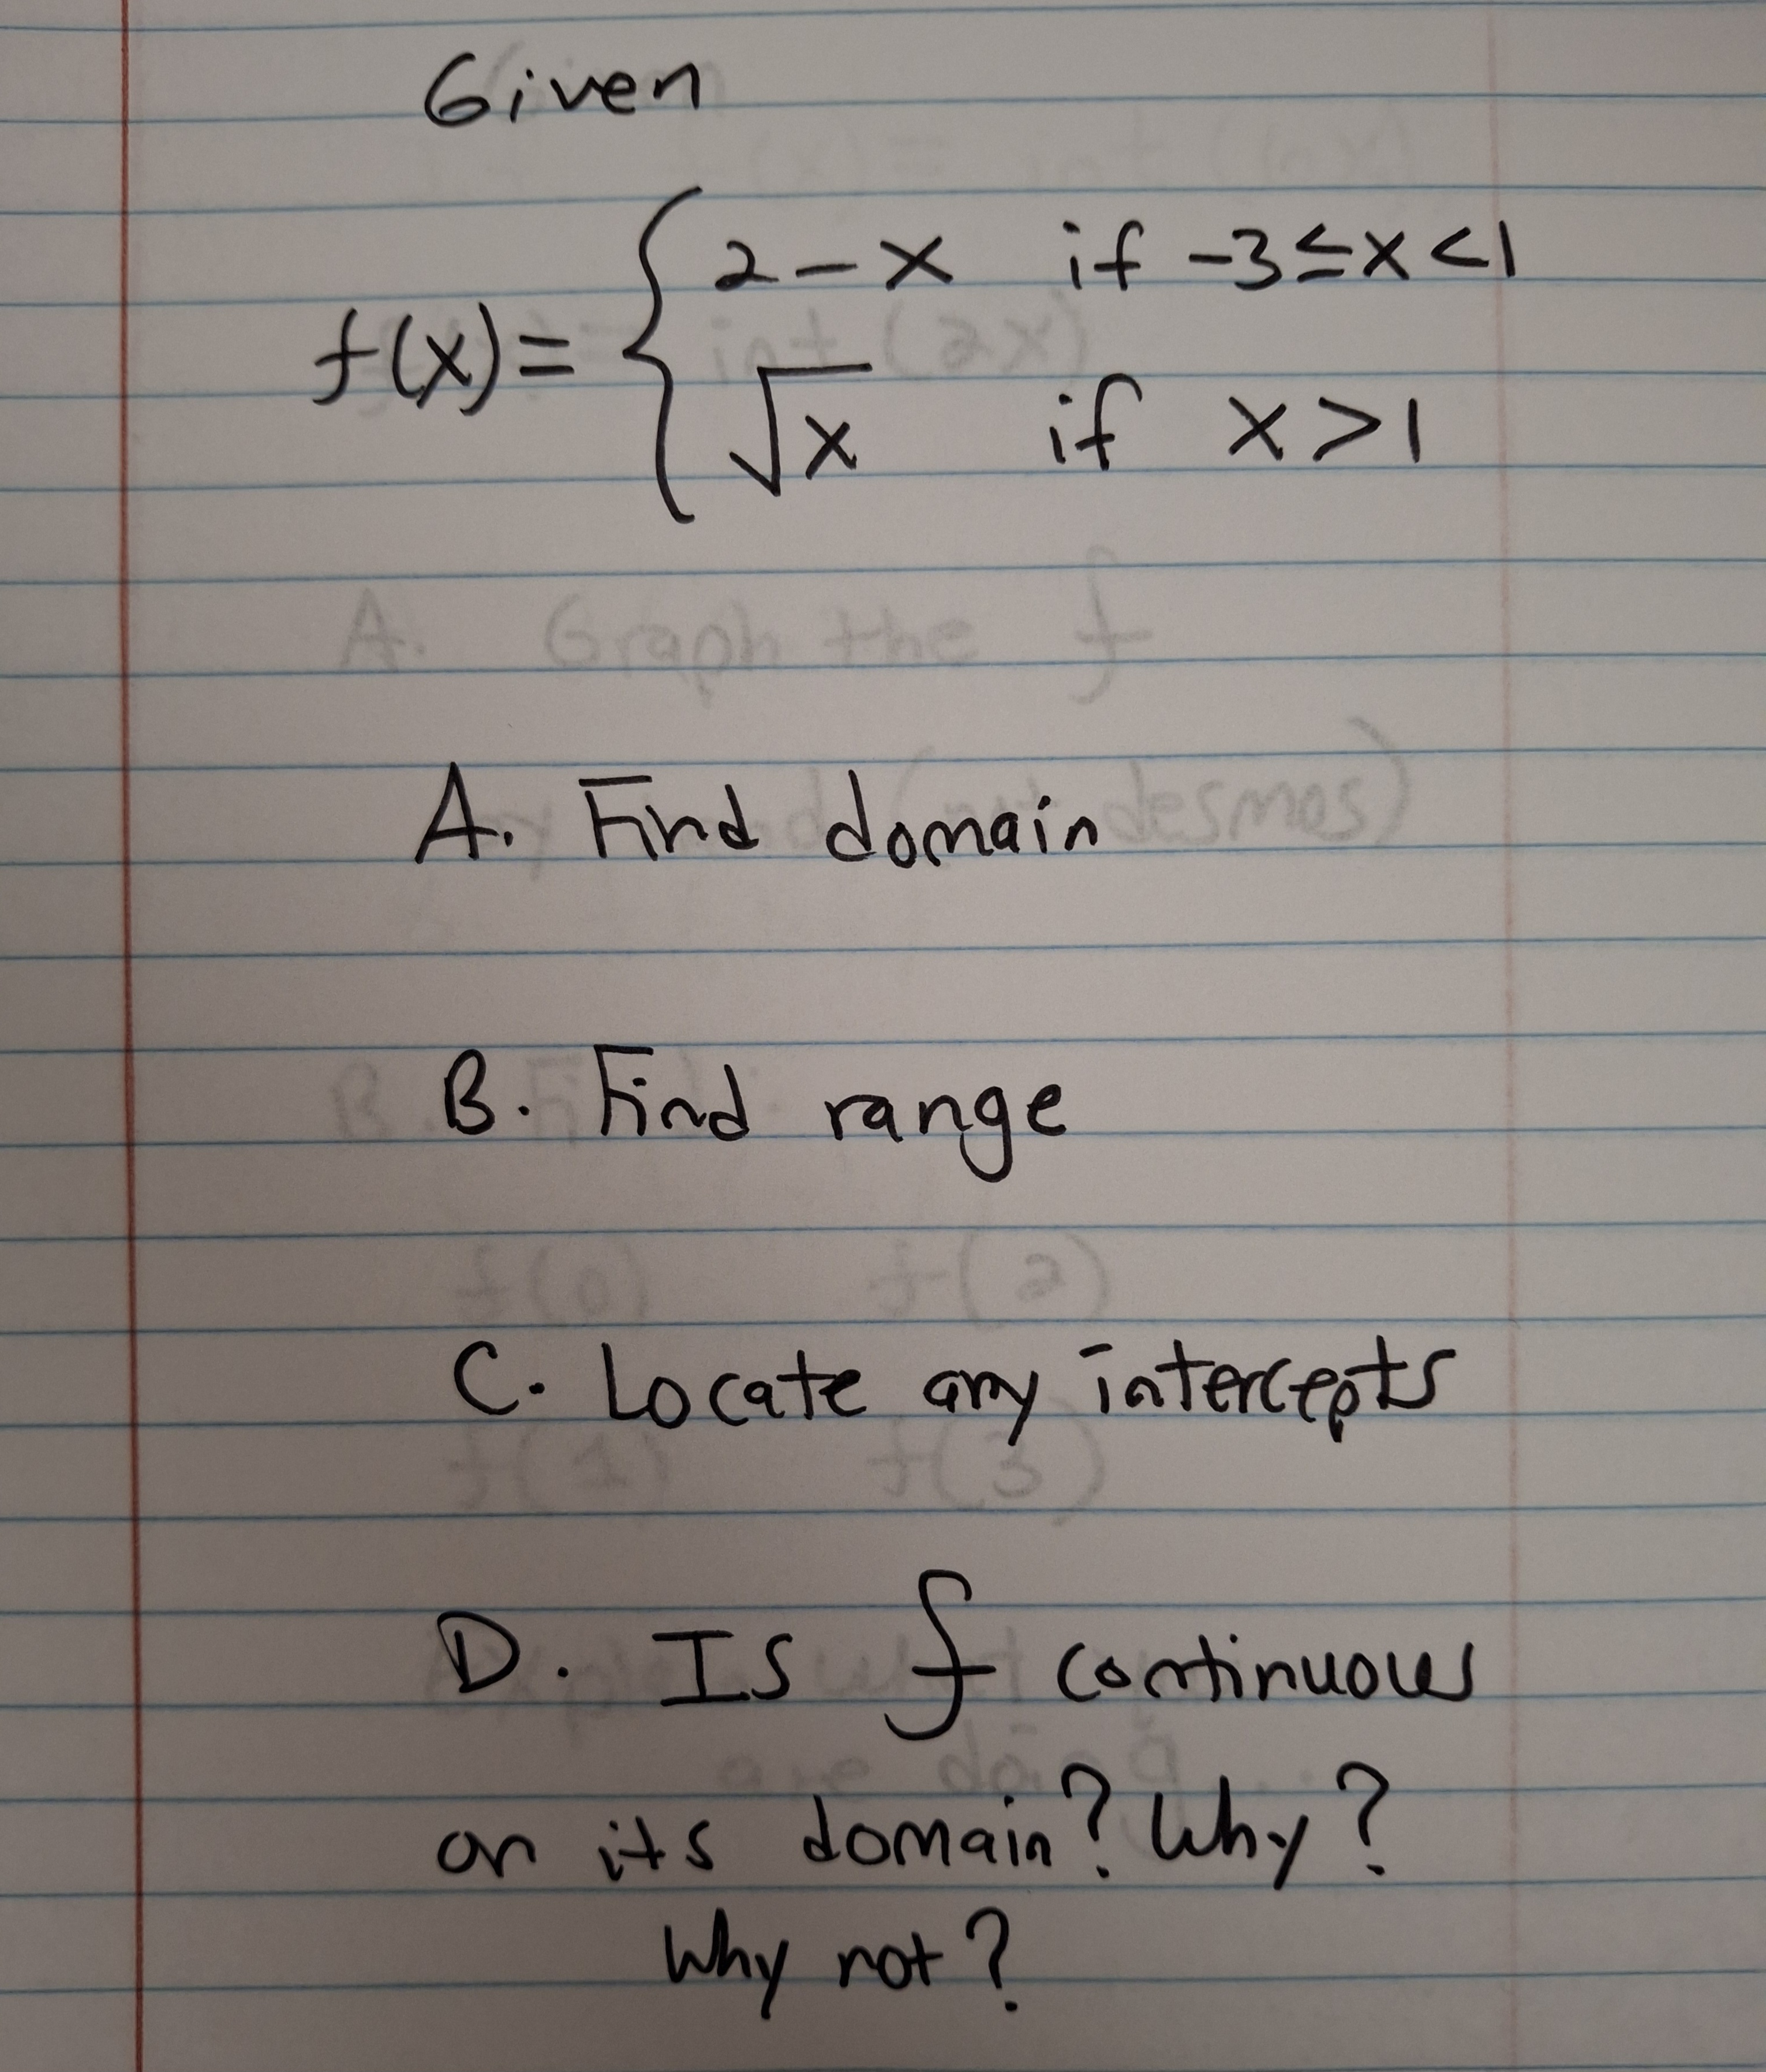 Given
f(x) = { 2 - x if -3 ≤ x < 1
√x if x > 1
A. Find domain
B. Find range
C. Locate any intercepts
D. Is f continuous
on its domain? Why?
Why not?